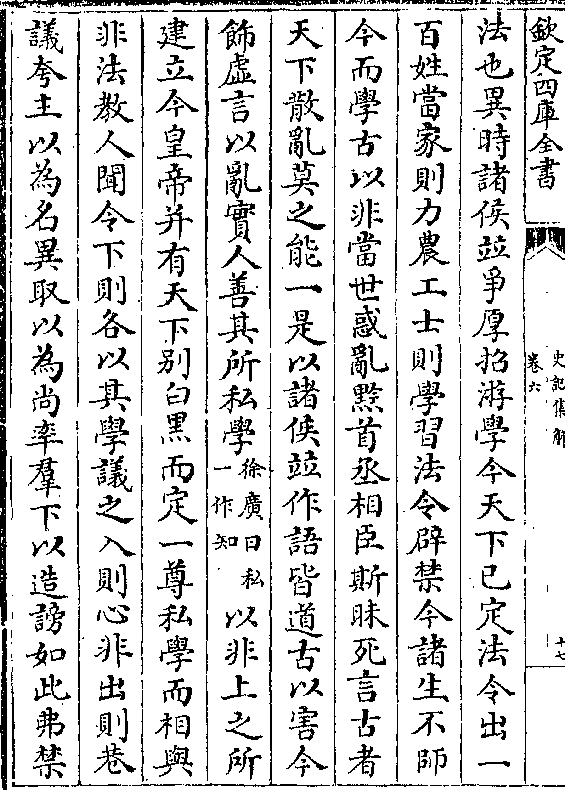 欽定四庫全書
史記集解
卷六
十七
法也異時諸侯並爭厚招游學今天下已定法令出一
百姓當家則力農工士則學習法令辟禁今諸生不師
今而學古以非當世惑亂黔首丞相臣斯昧死言古者
天下散亂莫之能一是以諸侯並作語皆道古以害今
飾虛言以亂實人善其所私學徐廣曰私一作知以非上之所
建立今皇帝并有天下别白黑而定一尊私學而相與
非法教人聞令下則各以其學議之入則心非出則巷
議夸主以為名異取以為尚率羣下以造謗如此弗禁